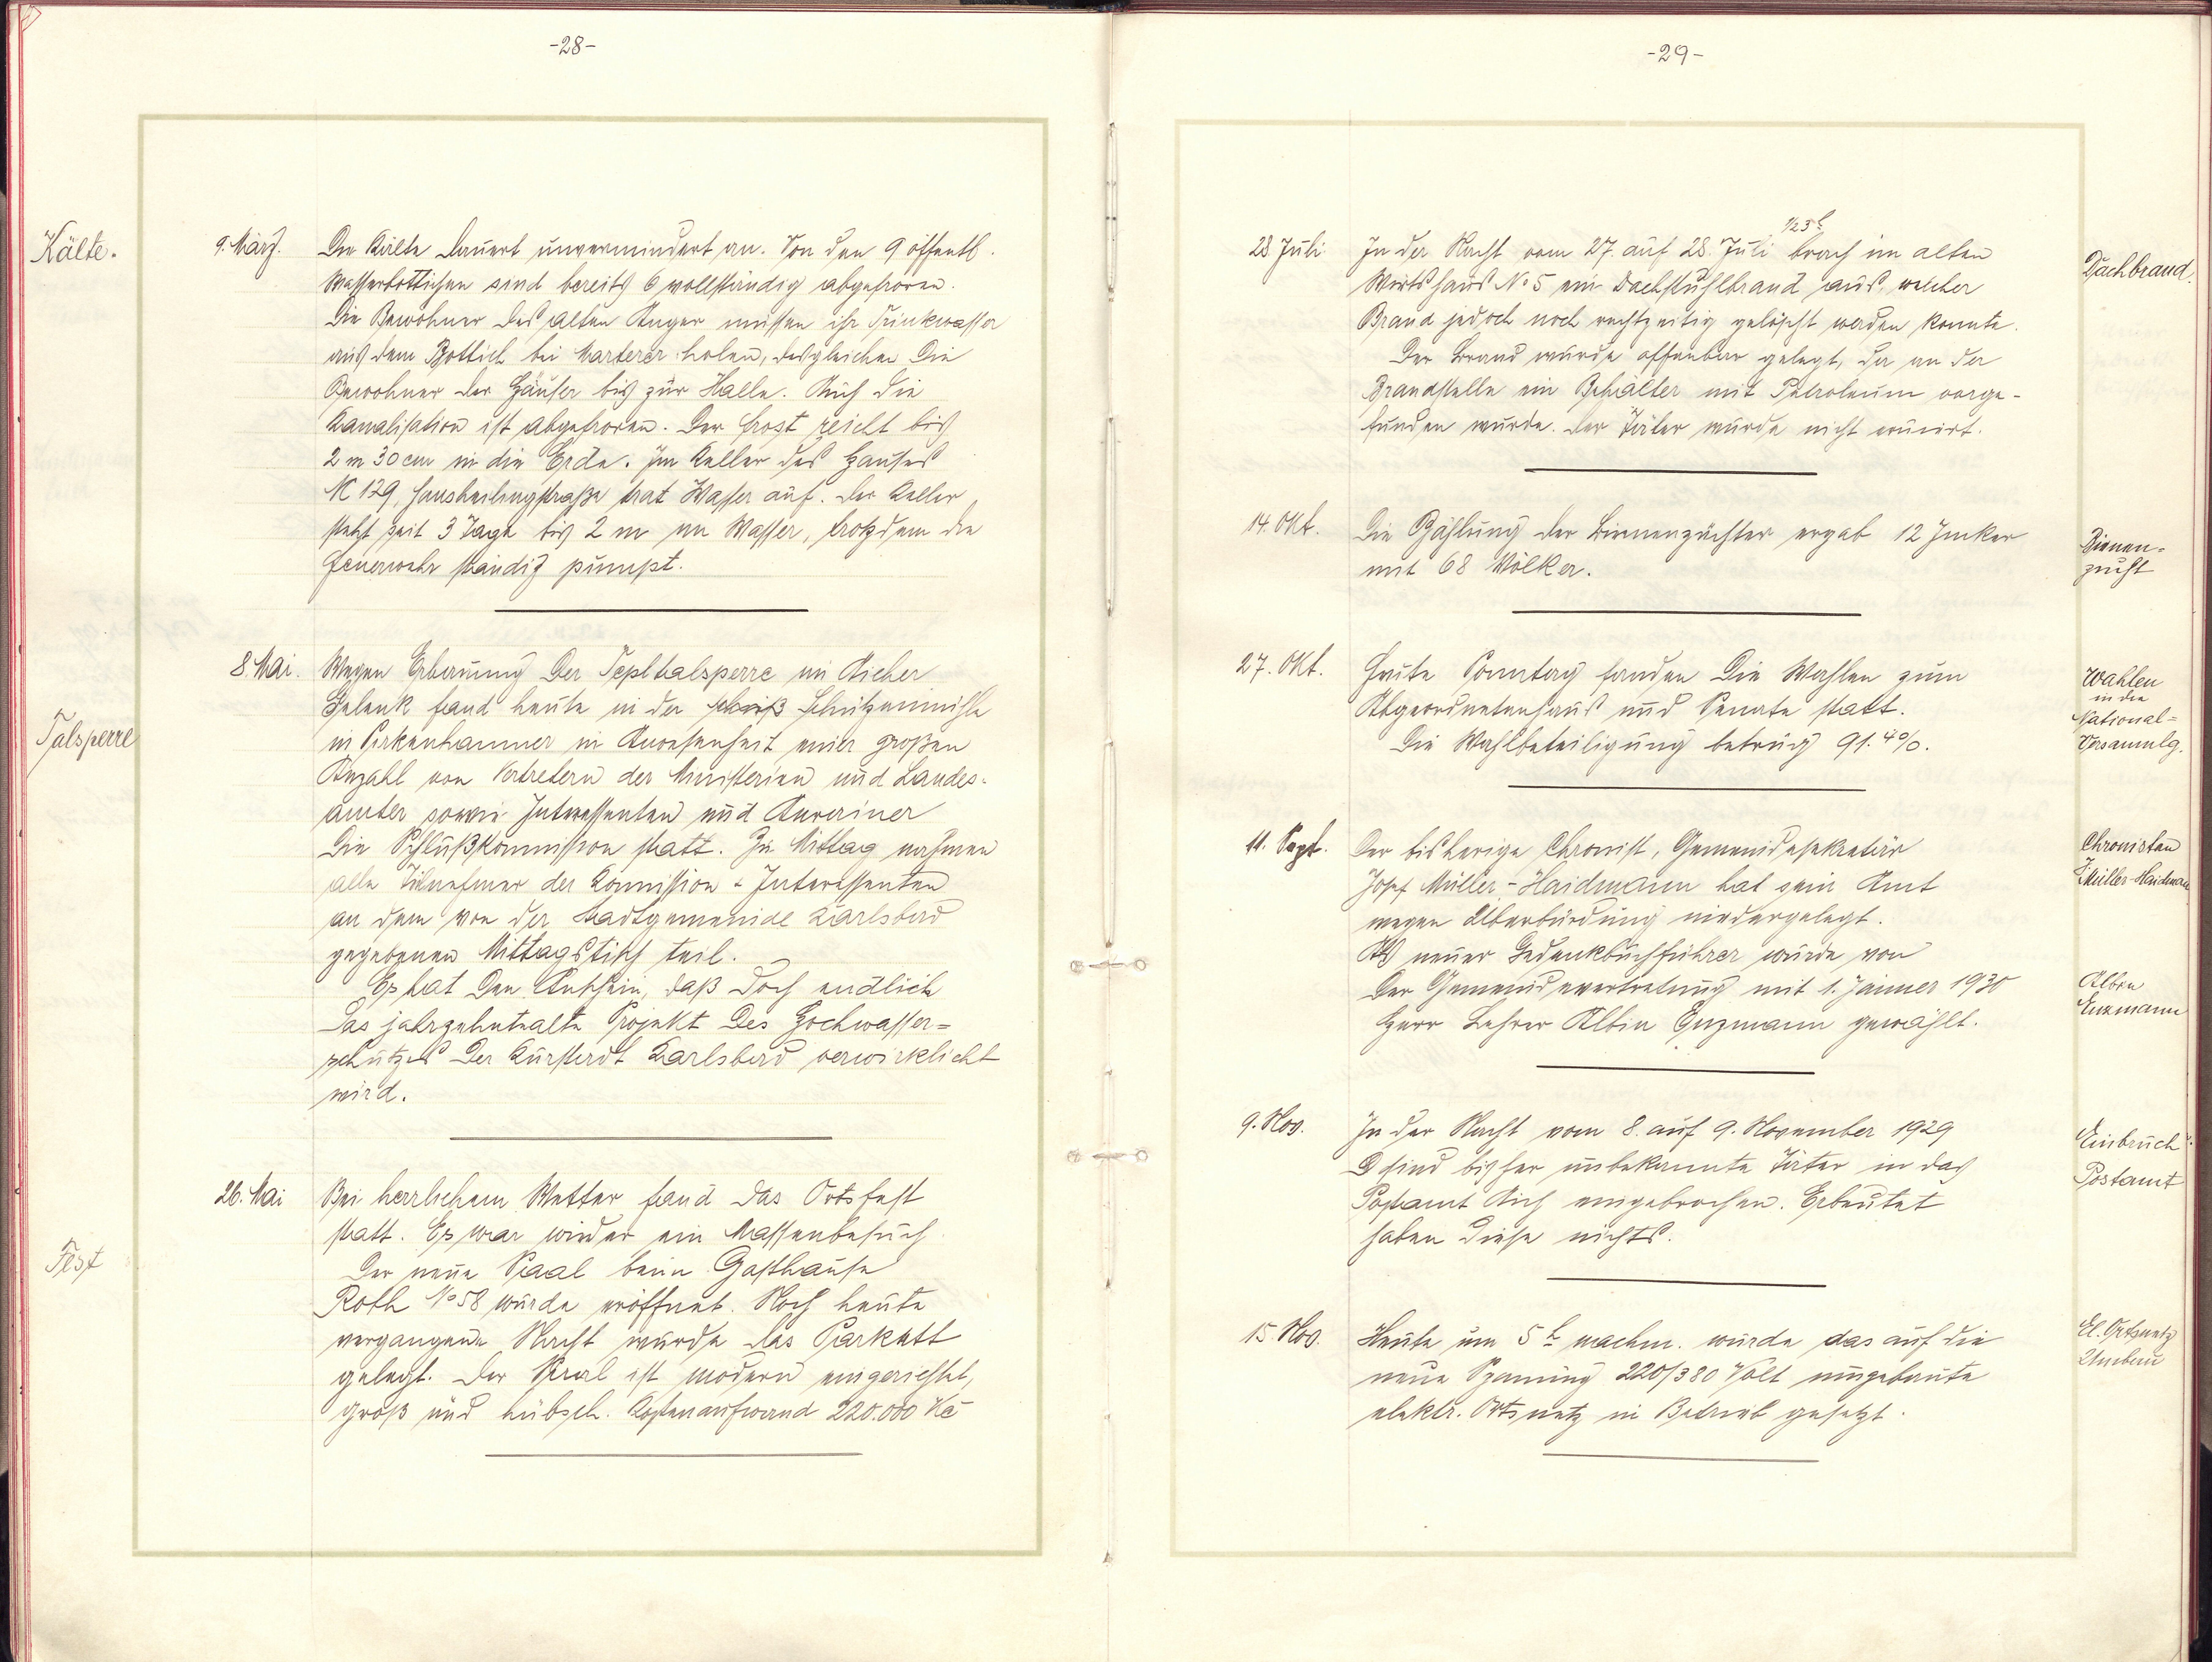 -28-
Kälte.
9. März.
Die Kälte dauert unvermindert an. Von den 9 öffentl.
Wasserbottichen sind bereits 6 vollständig abgefroren.
Die Bewohner des alten Anger müssen ihr Trinkwasser
aus dem Bottich bei Marterer holen, desgleichen die
Bewohner der Häuser bis zur Halle. Auch die
Kanalisation ist abgefroren. Der Frost reicht bis
2 m 30 cm in die Erde. Im Keller des Hauses
N 129, Hansheilingstraße trat Wasser auf. Der Keller
steht seit 3 Tage bis 2 m an Wasser, trotzdem die
Feuerwehr ständig pumpt.
Talsperre
8. Mai.
Wegen Erbauung der Tepltalsperre im Aicher
Gelenk fand heute in der Schützenmühle
in Pirkenhammer in Anwesenheit einer großen
Anzahl von Vertretern der Ministerien und Landes-
ämter sowie Interessenten und Anrainer
die Schlußkommission statt. Zu Mittag nahmen
alle Teilnehmer der Komission u Interessenten
an dem von der Stadtgemeinde Karlsbad
gegebenen Mittagstisch teil.
Es hat den Anschein, daß doch endlich
das jahrzehntealte Projekt des Hochwasser-
schutzes der Kurstadt Karlsbad verwirklicht
wird.
Fest
26. Mai
Bei herrlichem Wetter fand das Ortsfest
statt. Es war wieder ein Massenbesuch.
Der neue Saal beim Gasthause
Roth No 58 wurde eröffnet. Noch heute
vergangene Nacht wurde das Parkett
gelegt. Der Saal ist modern eingerichtet,
groß und hübsch. Kostenaufwand 220.000 Kč
-29-
1/2 3 h
28 Juli
In der Nacht vom 27. auf 28. Juli brach im alten
Wirtshaus No 5 ein Dachstuhlbrand aus, welcher
Brand jedoch noch rechtzeitig gelöscht werden konnte.
Der Brand wurde offenbar gelegt, da an der
Brandstelle ein Behälter mit Petroleum vorge-
funden wurde. Der Täter wurde nicht eruirt.
Dachbrand.
14. Okt.
Die Zählung der Bienenzüchter ergab 12 Imker
mit 68 Völker.
Bienen-
zucht
27. Okt.
Heute Sonntag fanden die Wahlen zum
Abgeordnetenhaus und Senate statt.
Die Wahlbeteiligung betrug 91.4%.
Wahlen
in die
National-
Versammlg.
11. Sept.
Der bisherige Chronist, Gemeindesekretär
Josef Müller-Haidmann hat sein Amt
wegen Überbürdung niedergelegt.
Als neuer Gedenkbuchführer wurde von
der Gemeindevertretung mit 1. Jänner 1930
Herr Lehrer Albin Enzmann gewählt.
Chronisten
J. Müller-Haidmann
Albin
Enzmann
9. Nov.
In der Nacht vom 8. auf 9. November 1929
sind bisher unbekannte Täter in das
Postamt Aich eingebrochen. Erbeutet
haben diese nichts.
Einbruch
Postamt
15. Nov.
Heute um 5 h nachm. wurde das auf die
neue Spannung 220/380 Volt umgebaute
elektr. Ortsnetz in Betrieb gesetzt.
El. Ortsnetz
Umbau